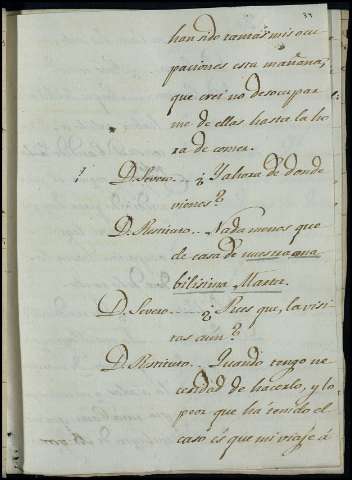 37
han sido tantas mis ocu
paciones esta mañana,
que crei no desocupar
me de ellas hasta la ho
ra de comer.
D. Severo. ¿ Y ahora de donde
vienes?
D. Restituto. Nada menos que
de casa de nuestra ama
bilisima Marter.
D. Severo. ¿ Pues que, la visi
tas aun?
D. Restituto. Quando tengo ne
cesidad de hacerlo, y lo
peor que ha tenido el
caso és que mi viaje á